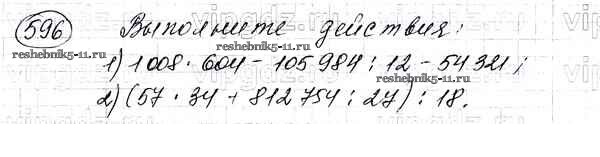 596 Выполните действия:
reshebnik5-11.ru
reshebnik5-11.ru
1) 1008 · 604 - 105984 : 12 - 54321;
reshebnik5-11.ru
2) (57 · 34 + 812754 : 27) : 18.